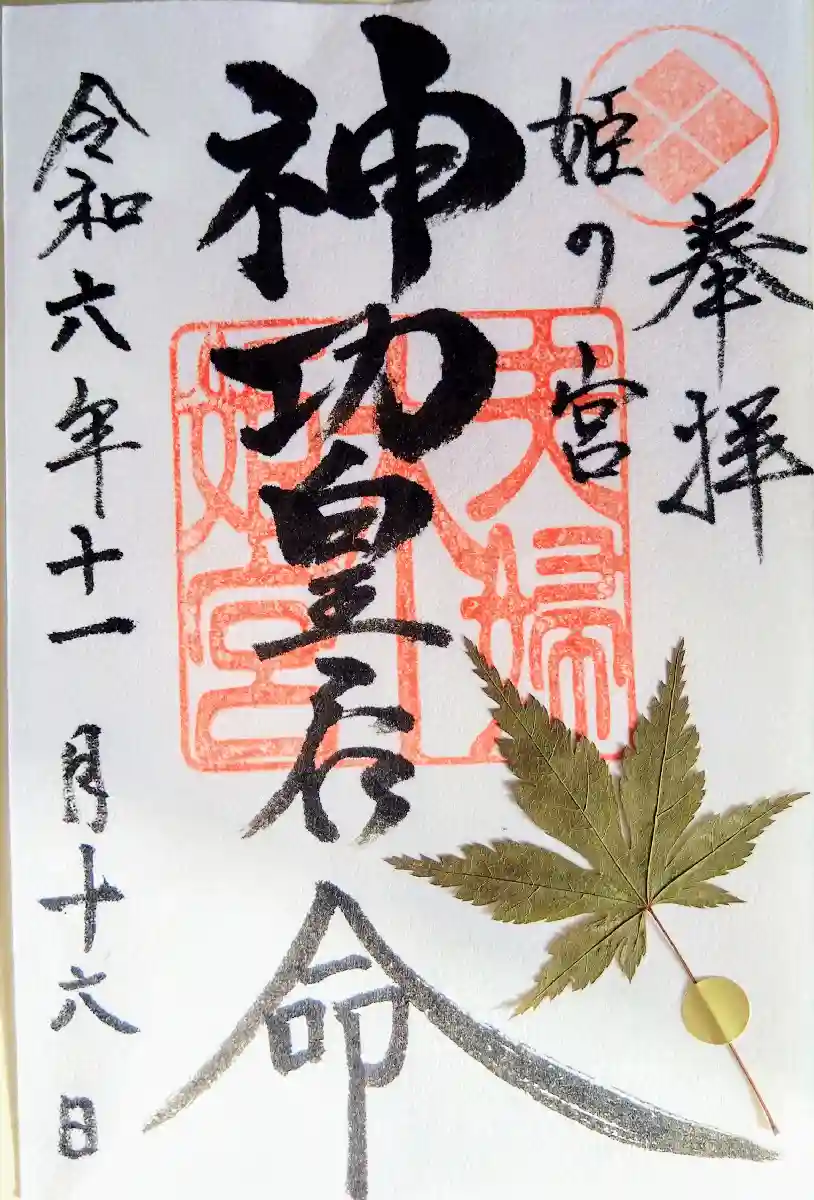 奉拝
姫の宮
神功皇后命
令和六年十一月十六日
夫婦
姫宮